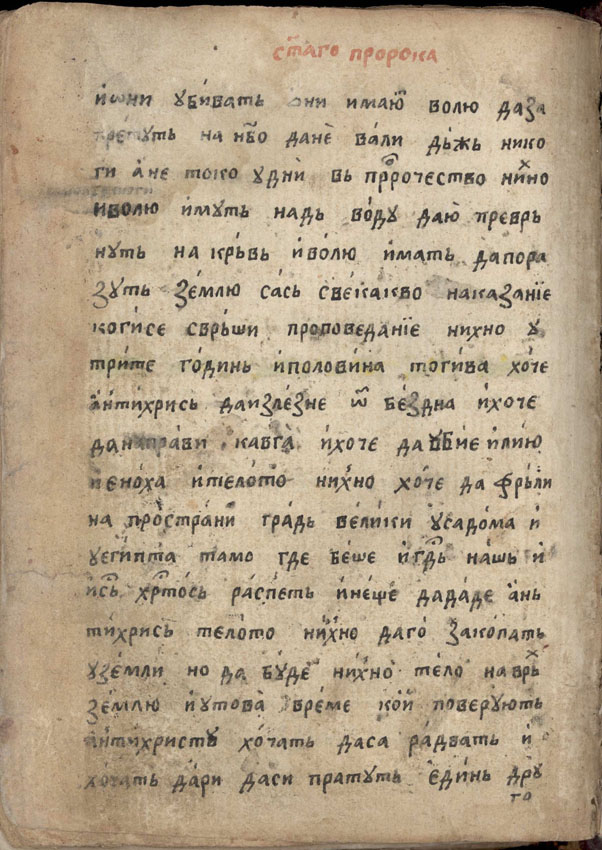 ст҃аго пророка
и҆ѡни убивать ѻни имаю̑ волю даза
претуть на нб҃о данѐ ва́ли дьжь нико
ги а҆не токо удни̇̀ вь прⷪ҇рочество ни́хно
иволю и҆муть надь во́ду даю̀ превръ
нуть на крьвь иво́лю и҆мать дапора
ꙁуть ꙁе́млю са́сь све́какво накаꙁанїе
коги́се сврьши проповеданїе нихно у
три́те го́динь иполови́на тоги́ва хо́че
а҆нтихрись даиꙁле́ꙁне ѿ бе́ꙁдна ихоче
данапра́ви кавга̀ ихоче даубїе и҆лию
иеноха ителото̀ нихно хо́че да фрьли
на простра́ни градь вели́ки усадо́ма и
уеги́пта тамо где бе́ше игд҇ь на́шь и
и҆с҇ь хр҇то́сь распеть ине́ще дада́де а҆нь
тихрись телото нихно даго̀ ꙁакопать
уꙁе́мли но да бу́де ни́хно те́ло наврь̾
ꙁе́млю иутова̀ вре́ме кои̇̀ поверують
а҆нтихристу хо́чать даса ра́двать и
хо́чать да́ри даси пратуть е҆ди́нь дру
го